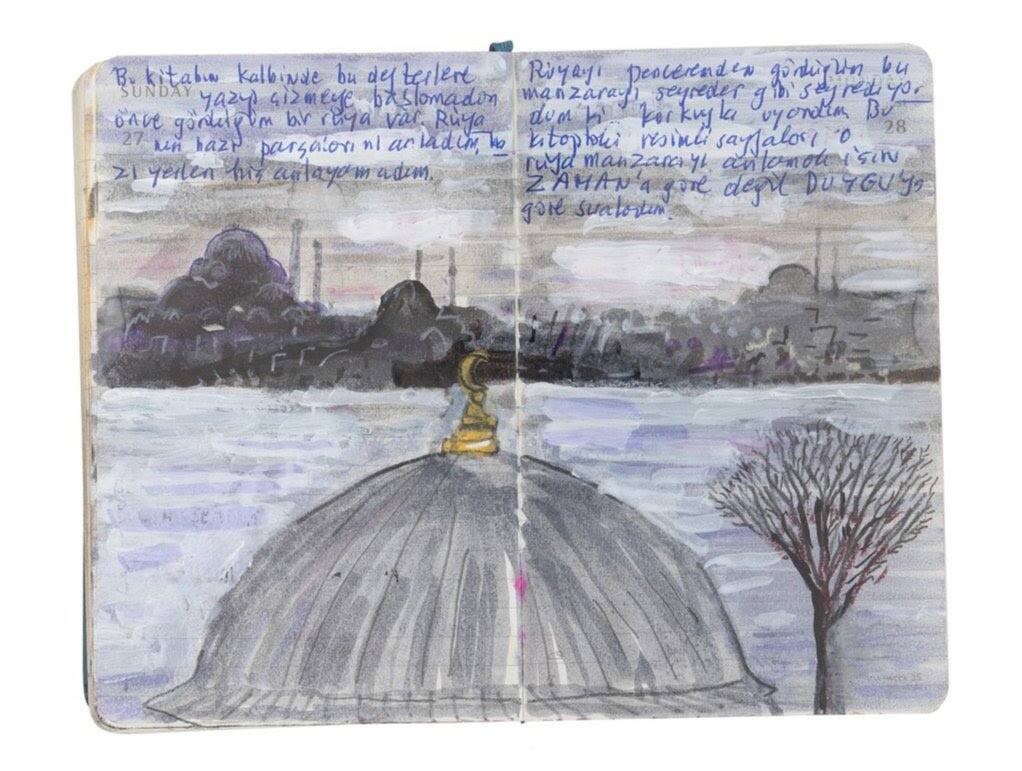 Bu kitabın kalbinde bu defterlere
SUNDAY
yazıp çizmeye başlamadan
önce gördüğüm bir rüya var. Rüya
27
nın bazı parçalarını anladım, ba
zı yerleri hiç anlayamadım.
Rüyayı penceremden gördüğüm bu
manzarayı seyreder gibi seyrediyor
dum ki korkuyla uyandım. Bu
28
kitaptaki resimli sayfaları o
rüya manzarayı anlamak için
ZAMAN'a göre değil DUYGUya
göre sıraladım.